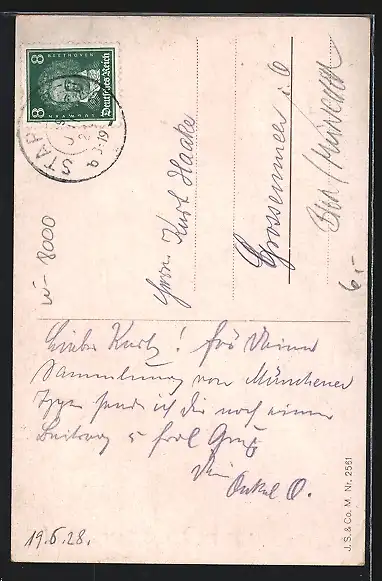 8 BEETHOVEN 8
Deutsches Reich
STAR
Herrn Kurt Haake
Grossenmeer i. O
w - 8000
6,-
Lieber Kurt! Für Deine
Sammlung von Münchener
Typen sende ich Dir noch einen
Beitrag
Gruß
Dein
Onkel O.
19.6.28.
J. S. & Co. M. Nr. 2561